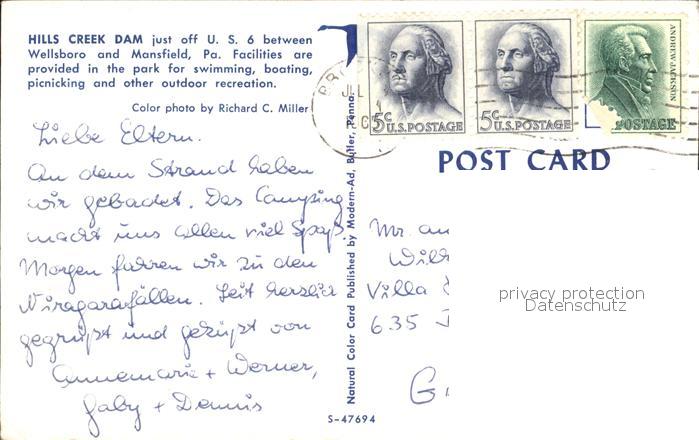 HILLS CREEK DAM just off U. S. 6 between
Wellsboro and Mansfield, Pa. Facilities are
provided in the park for swimming, boating,
picnicking and other outdoor recreation.
Color photo by Richard C. Miller
Liebe Eltern.
An dem Strand haben
wir gebadet. Das Camping
macht uns allen viel Spaß.
Morgen fahren wir zu den
Niragarafällen. Seit herzlich
gegrüßt und geküßt von
Annemarie + Werner,
Gaby + Dennis
Natural Color Card Published by Modern-Ad, Butler, Penna.
S-47694
JUL
5c U.S. POSTAGE
5c U.S. POSTAGE
ANDREW JACKSON
POSTAGE
POST CARD
Mr. an
Villa
635
G
privacy protection
Datenschutz